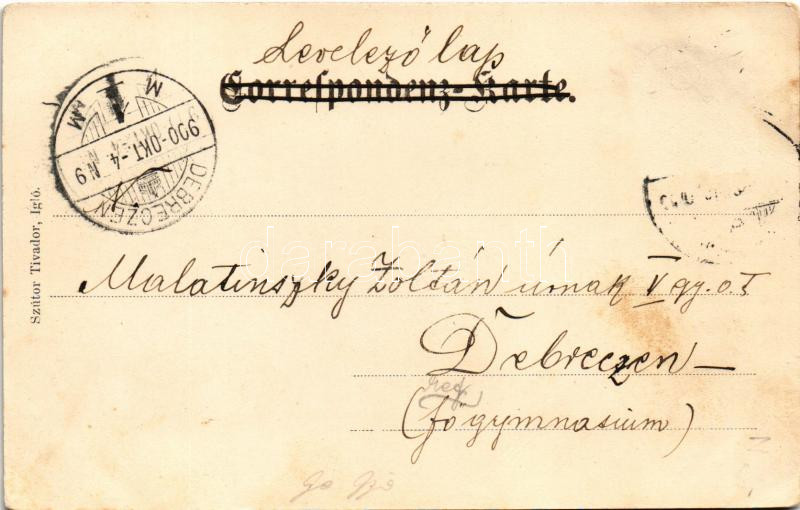 Levelező lap
Correspondenz-Karte.
900-OKT.-4. N9
DEBRECZEN
Szútor Tivador, Igló.
darabanth
Malatinszky Zoltán úrnak V gy. o. t
Debreczen —
ref.
(főgymnasium)